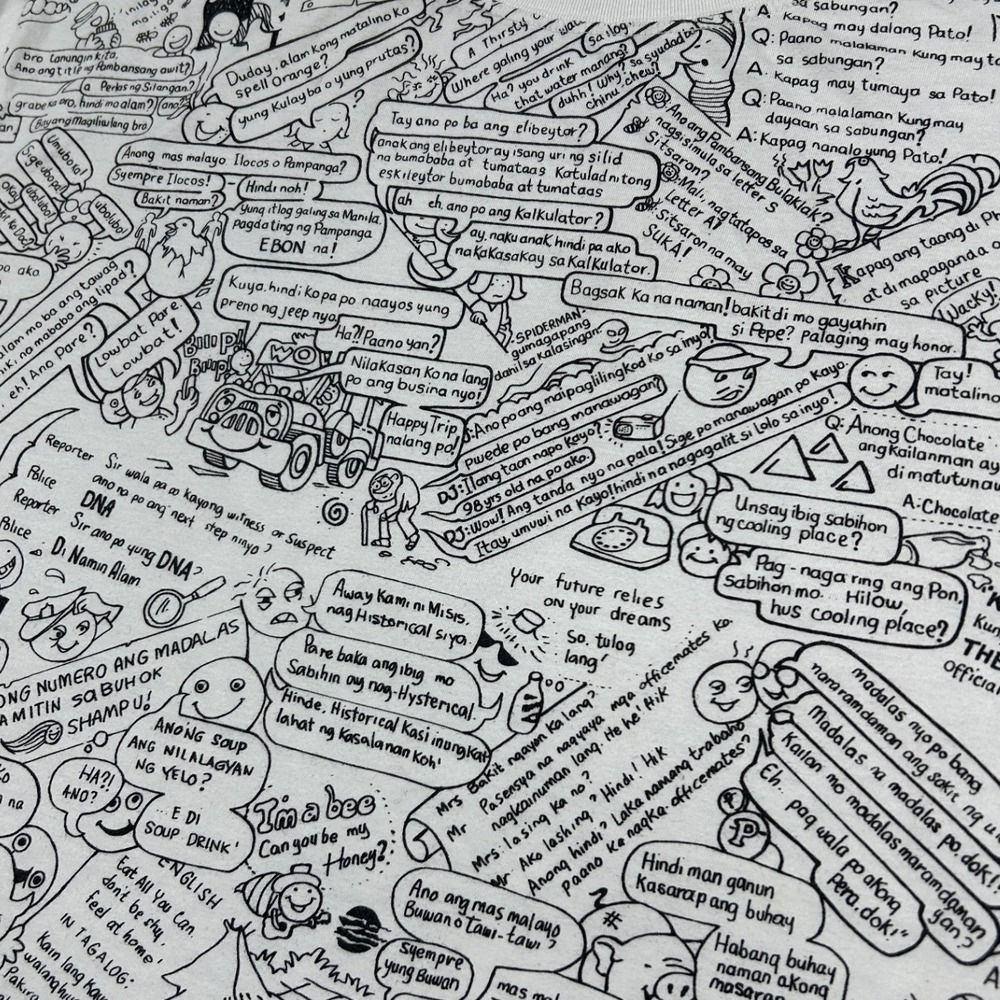 bro tanungin kita,
Ano ang title ng Pambansang awit?
a Perlas ng Silangan.?
grabe ka bro, hindi mo alam?
ano?
Bayang Magiliw lang bro
Duday, alam kong matalino ka
spell Orange?
yung kulay ba o yung prutas?
A Thirsty
Where galing your wa
sa ilog
Ha? you drink
that water manang?
duhh! Why? sa syudad ba
chinu-chew?
sa sabungan?
A. Kapag may dalang Pato!
Q: Paano malalaman kung may ta
sa sabungan?
A. Kapag may tumaya sa Pato!
Q: Paano malalaman kung may
dayaan sa sabungan?
A: Kapag nanalo yung Pato!
Umubo ka!
Sige ubo pa!
ubo ubo!
ubo ubo!
Anong mas malayo Ilocos o Pampanga?
Syempre Ilocos!
Hindi noh!
Bakit naman?
yung itlog galing sa Manila,
pagdating ng Pampanga
EBON na!
Tay ano po ba ang elibeytor?
anak ang elibeytor ay isang uri ng silid
na bumababa at tumataas Katulad nitong
eskileytor bumobaba at tumataas
ah eh. ano po ang Kalkulator?
ay, naku anak hindi pa ako
nakakasakay sa Kalkulator.
Ano ang Pambansang Bulaklak?
nagsisimula sa letter S
Sitsaron?
Mali, nagtatapos sa
Letter A!
Sitsaron na may
SUKA!
Kapag ang taong di Ph
at di mapagana. a
sa picture
Wacky!
alam mo ba ang tawag
iki, na mababa ang lipad?
eh! Ano Pare?
Lowbat Pare
Lowbat!
Kuya, hindi ko pa po naayos yung
preno ng jeep nyo.
Ha?! Paano yan!
Nilakasan Ko na lang
po ang busina nyo!
Happy Trip
nalang po!
Bllip!
Bllip!
SPIDERMAN-
gumagapang
dahil sa kalasingan.
Bagsak ka na naman! bakit di mo gayahin
si Pepe? Palaging may honor.
Tay!
matalino
: Ano po ang maipaglilingkod Ko sa inyo!
Pwede po bang manawagan?
DJ: Ilang taon napo kayo?
98 yrs old na po ako.
DJ: Wow! Ang tanda nyo na pala! Sige po manawagan po kayo.
Itay, umuwi na kayo! hindi na nagagalit si lolo sa inyo!
Q: Anong Chocolate
ang kailanman ay
di matutunaw
A: Chocolate
Reporter Sir wala pa po kayong witness or suspect
ano na po ang next step ninyo?
Police DNA
Reporter Sir ano po yung DNA?
Police Di Namin Alam
Unsay ibig sabihon
ng cooling place?
Pag - naga ring ang Pon,
sabihon mo... Hilow,
hus cooling place?
Your future relies
on your dreams
So, tulog
lang!
Away Kami ni Misis,
nag Historical siya.
Pare baka ang ibig mo
Sabihin ay nag-Hysterical.
Hinde, Historical Kasi inungkat
lahat ng Kasalanan Koh!
ONG NUMERO ANG MADALAS
AMITIN SA BUHOK
SHAMPU!
ANONG SOUP
ANG NILALAGYAN
NG YELO?
HA?!
ANO?
...E DI
SOUP DRINK!
I'm a bee
Can you be my
Honey?
Mrs Bakit ngayon ka lang?
Mr Pasensya na nagyaya mga officemates ka
nagkainuman lang. He he! Hik
Mrs: lasing ka no?
Mr Ako lashing? Hindi! Hik
Anong hindi? Laka namang trabaho
Paano Ka nagka-officemates?
madalas nyo po bang
nararamdaman ang sakit ng u
Madalas na madalas po, dok!
Kailan mo madalas maramdaman
yan?
Eh. pag wala po akong
pera, dok!
Kun
THE
official
ENGLISH
Eat All You Can.
don't be shy,
feel at home'
IN TAGALOG:
Kain lang Kayo
walang hiya
Pakira
Ano ang mas malayo
Buwan o Tawi-tawi?
syempre
yung Buwan
mas ma
P
Hindi man ganun
Kasarap ang buhay
Habang buhay
naman akong
masaran